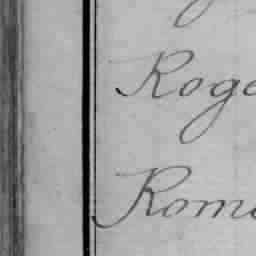 Roge
Rome